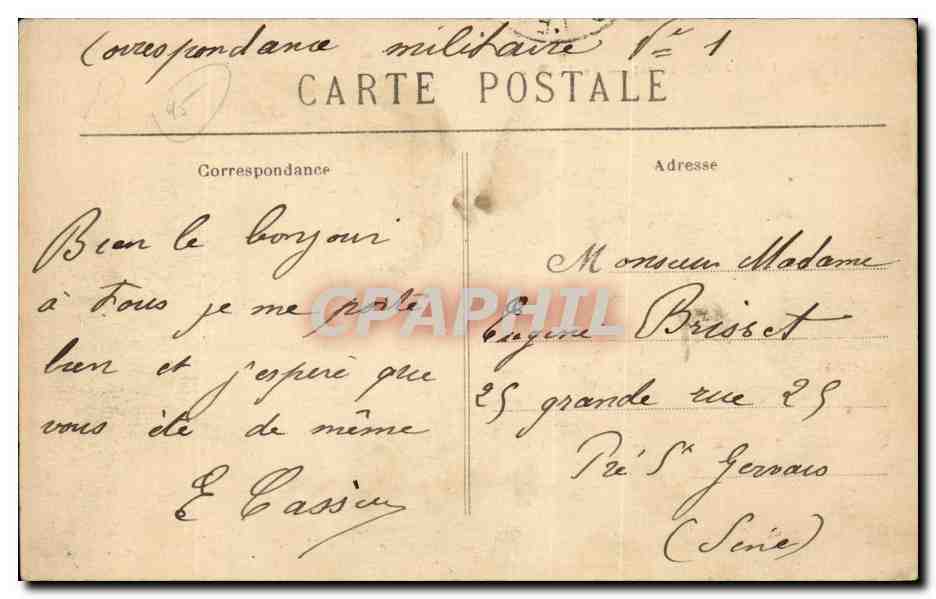 Correspondance militaire
CARTE POSTALE
95
Correspondance
Adresse
Bien le bonjour
à Tous je me porte
bien et j'espère que
vous ête de même
E Cassieu
Monsieur Madame
Eugène Brisset
25 grande rue 25
Pré St Gervais
(Seine)
CPAPHIL